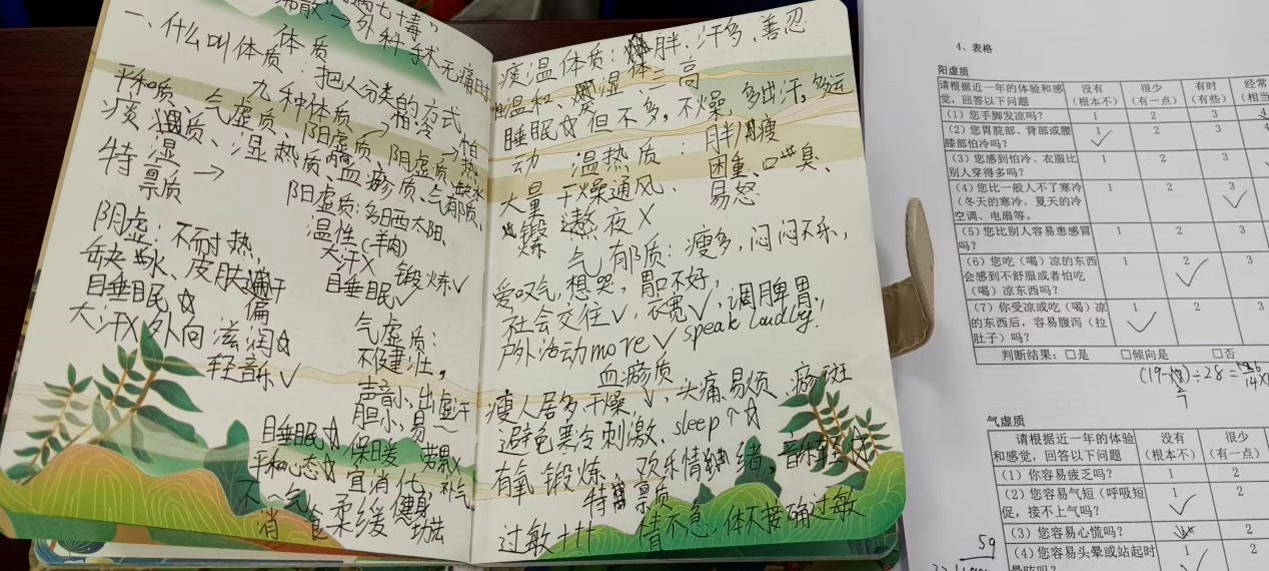 外科手术无痛
体质
一、什么叫体质:把人分类的方式
九种体质
平和质、气虚质、阳虚质、阴虚质
痰湿质、湿热质、血瘀质、气郁质
特禀质→
阳虚质:多日西太阳
温性(羊肉)
大汗X 锻炼√
睡眠√
阴虚:不耐热,
缺水、皮肤偏干
睡眠☆
大汗X外向 滋润☆
轻音乐√
气虚质:
不健壮,
声音小、出虚汗
胆小、易
睡眠☆ 保暖 劳累X
平和心态☆ 宜消化、补气
不 气 柔缓健身
消 食 功法
痰湿体质:胖、汗多、善忍
温和、湿、三高
睡眠☆ 但不多,不燥,多出汗,多运
动 温热质:胖/瘦
大量 干燥通风、困重、口臭、
锻炼 熬夜X 易怒
气郁质:瘦多,闷闷不乐,
爱叹气,想哭,胃口不好,
社会交往√,衣宽√,调脾胃,
户外活动more√ speak loudly!
血瘀质
瘦人居多,干燥,头痛、易烦、瘀斑
避免寒冷刺激、sleep↑☆
有氧锻炼、欢乐情绪、音乐
特禀质
过敏+++ 情不急,体不接确过敏
4、表格
阳虚质
请根据近一年的体验和感觉,回答以下问题 没有(根本不) 很少(有一点) 有时(有些) 经常
(1)您手脚发凉吗? 1 2 3 4
(2)您胃脘部、背部或腰膝部怕冷吗? 1 2 3 4
(3)您感到怕冷、衣服比别人穿得多吗? 1 2 3
(4)您比一般人不了寒冷(冬天的寒冷,夏天的冷空调、电扇等。 1 2 3
(5)您比别人容易患感冒吗? 1 2 3
(6)您吃(喝)凉的东西会感到不舒服或者怕吃(喝)凉东西吗? 1 2 3
(7)你受凉或吃(喝)凉的东西后,容易腹泻(拉肚子)吗? 1 2 3
判断结果:□是 □倾向是 □否
气虚质
请根据近一年的体验和感觉,回答以下问题 没有(根本不) 很少(有一点)
(1)你容易疲乏吗? 1 2
(2)您容易气短(呼吸短促,接不上气吗? 1 2
(3)您容易心慌吗? 2
(4)您容易头晕或站起时 1 2
59